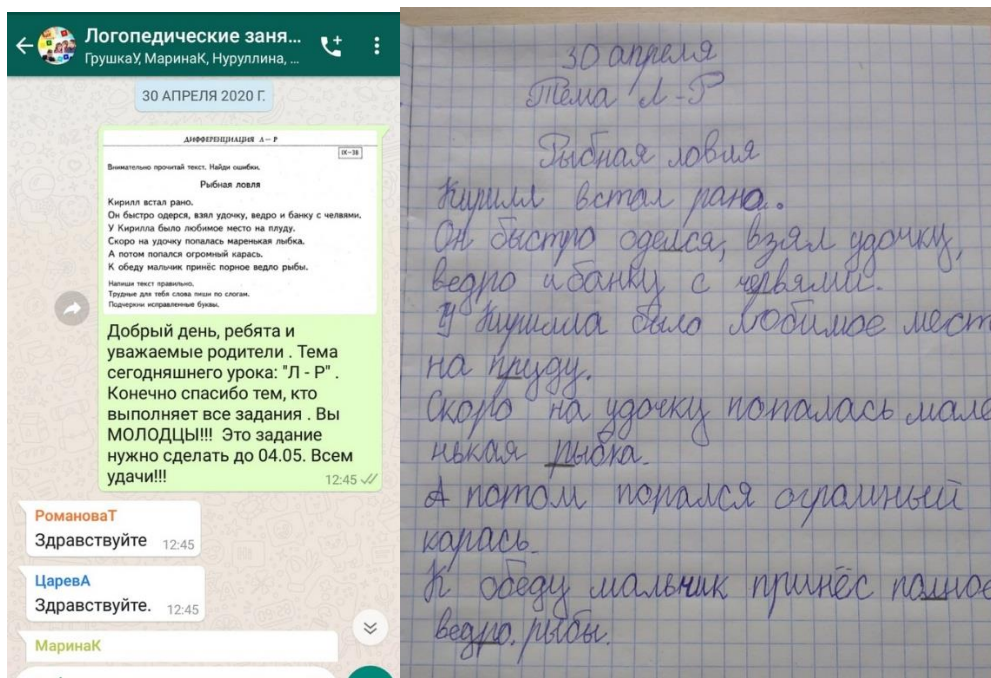 Логопедические заня...
ГрушкаУ, МаринаК, Нуруллина, ...
30 АПРЕЛЯ 2020 Г.
ДИФФЕРЕНЦИАЦИЯ Л – Р
IX–38
Внимательно прочитай текст. Найди ошибки.
Рыбная ловля
Кирилл встал рано.
Он быстро одерся, взял удочку, ведро и банку с челвями.
У Кирилла было любимое место на плуду.
Скоро на удочку попалась маренькая лыбка.
А потом попался огромный карась.
К обеду мальчик принёс порное ведло рыбы.
Напиши текст правильно.
Трудные для тебя слова пиши по слогам.
Подчеркни исправленные буквы.
Добрый день, ребята и
уважаемые родители . Тема
сегодняшнего урока: "Л - Р" .
Конечно спасибо тем, кто
выполняет все задания . Вы
МОЛОДЦЫ!!! Это задание
нужно сделать до 04.05. Всем
удачи!!!
12:45
РомановаТ
Здравствуйте 12:45
ЦареваА
Здравствуйте. 12:45
МаринаК
30 апреля
Тема Л-Р
Рыбная ловля
Кирилл встал рано.
Он быстро оделся, взял удочку,
ведро и банку с червями.
У Кирилла было любимое мест
на пруду.
Скоро на удочку попалась мале
нькая рыбка.
А потом попался огромный
карась.
К обеду мальчик принёс полное
ведро. рыбы.